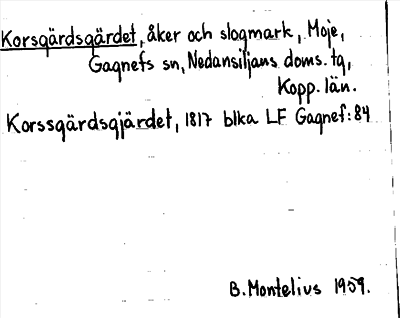 Korsgärdsgärdet, åker och slogmark, Moje,
Gagnefs sn, Nedansiljans doms. tg,
Kopp. län.
Korssgärdsgjärdet, 1817 blka LF Gagnef: 84
B. Montelius 1959.